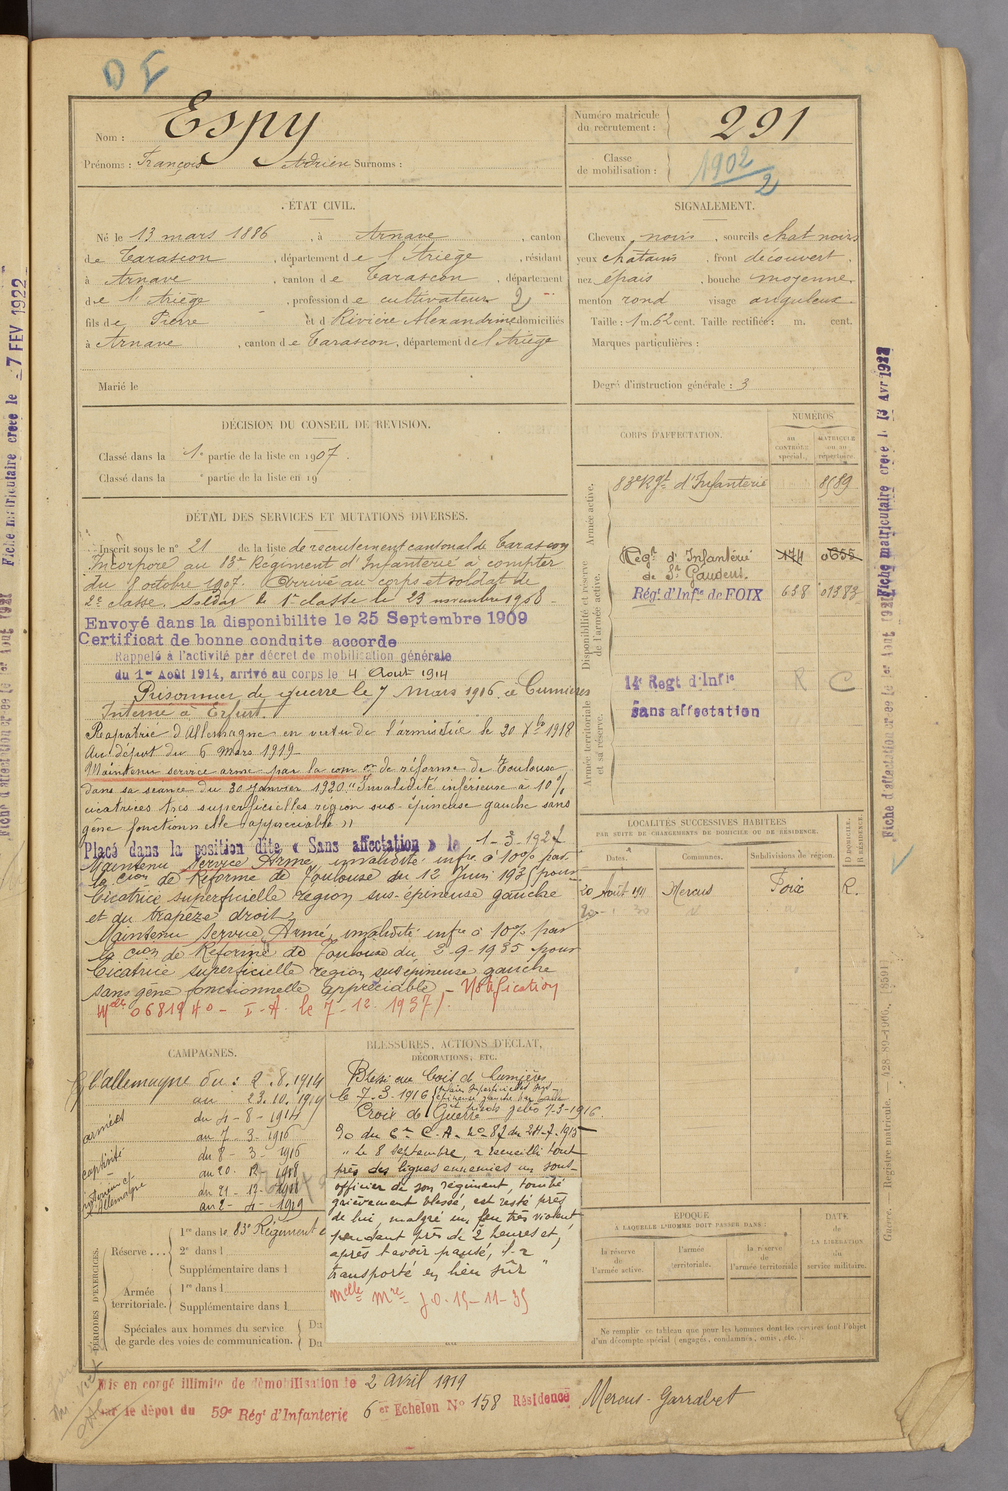 D F
Nom : Espy
Prénoms : François Adrien Surnoms :
Numéro matricule du recrutement : 291
Classe de mobilisation : 1902/2
ÉTAT CIVIL.
Né le 13 mars 1886, à Arnave, canton
de Tarascon, département de l'Ariège, résidant
à Arnave, canton de Tarascon, département
de l'Ariège, profession de cultivateur 2
fils de Pierre et d Rivière Alexandrine domiciliés
à Arnave, canton de Tarascon, département de l'Ariège
Marié le
SIGNALEMENT.
Cheveux noirs, sourcils chat noirs
yeux châtains, front découvert,
nez épais, bouche moyenne,
menton rond visage anguleux.
Taille : 1 m. 62 cent. Taille rectifiée : m. cent.
Marques particulières :
Degré d'instruction générale : 3
DÉCISION DU CONSEIL DE REVISION.
Classé dans la 1e partie de la liste en 1907.
Classé dans la partie de la liste en 19
DÉTAIL DES SERVICES ET MUTATIONS DIVERSES.
Inscrit sous le n° 21 de la liste de recrutement cantonal de Tarascon
Incorporé au 83e Régiment d'Infanterie à compter
du 8 octobre 1907. Arrivé au corps et soldat de
2e classe. Soldat de 1e classe le 23 novembre 1908.
Envoyé dans la disponibilite le 25 Septembre 1909
Certificat de bonne conduite accorde
Rappelé à l'activité par décret de mobilisation générale
du 1er Août 1914, arrivé au corps le 4 Aout 1914
Prisonnier de guerre le 7 Mars 1916 à Cumières
Interné à Erfurt.
Rapatrié d'Allemagne en vertu de l'armistice le 20 Xbre 1918
Au dépôt du 6 Mars 1919 -
Maintenu service armé par la com on de réforme de Toulouse
dans sa séance du 30 Janvier 1920. "Invalidité inférieure à 10%
cicatrices très superficielles région sus-épineuse gauche sans
gêne fonctionnelle appréciable "
Placé dans la position dite « Sans affectation » le 1-3-1927
Maintenu Service Armé, invalidité infre à 10% par
la Cion de Réforme de Toulouse du 12 Juin 1931 pour
Cicatrice superficielle région sus-épineuse gauche
et du trapèze droit.
Maintenu Service Armé, invalidité infre à 10% par
la Cion de Réforme de Toulouse du 3-9-1935 pour
Cicatrice superficielle région susépineuse gauche
sans gêne fonctionnelle appréciable - Notification
Melle 0681940 - I.A. le 7-12-1937.
CORPS D'AFFECTATION.
NUMÉROS
au CONTRÔLE spécial.
MATRICULE ou au répertoire.
Armée active.
83e Rgt d'Infanterie 8589
Disponibilité et réserve de l'armée active.
Régt d'Infanterie de St Gaudens. 174 0655
Rég. d'Infie de FOIX 638 01383
Armée territoriale et sa réserve.
14e Regt d'Infie R C
Sans affectation
LOCALITÉS SUCCESSIVES HABITÉES
PAR SUITE DE CHANGEMENTS DE DOMICILE OU DE RÉSIDENCE.
Dates. Communes. Subdivisions de région. D DOMICILE. R RÉSIDENCE.
20 Août 1911 Mercus Foix R.
CAMPAGNES.
C/ l'allemagne du : 2.8.1914
au 23.10.1919
armées du 4-8-1914
au 7-3-1916
captivité du 8-3-1916
au 20-12-1918
intérieur cf. Allemagne du 21-12-1918
au 2-4-1919
PÉRIODES D'EXERCICES.
Réserve ... 1re dans le 83e Régiment
2e dans l
Supplémentaire dans l
Armée territoriale. 1re dans l
Supplémentaire dans l
Spéciales aux hommes du service de garde des voies de communication. Du
Du
BLESSURES, ACTIONS D'ÉCLAT, DÉCORATIONS, ETC.
Blessé au bois de Cumières
le 7.3.1916
Croix de Guerre
Oo du 6e C.A. no 87 du 24-7-1915
" Le 8 septembre, a recueilli tout
près des lignes ennemies un sous-
officier de son régiment, tombé
grièvement blessé, est resté près
de lui, malgré un feu très violent,
pendant près de 2 heures et,
après l'avoir pansé, l'a
transporté en lieu sûr "
Melle Mre J.O. 15-11-35
ÉPOQUE
À LAQUELLE L'HOMME DOIT PASSER DANS :
la réserve de l'armée active.
l'armée territoriale.
la réserve de l'armée territoriale
DATE DE LA LIBÉRATION du service militaire.
Ne remplir ce tableau que pour les hommes dont les services font l'objet
d'un décompte spécial (engagés, condamnés, omis, etc.).
Mis en congé illimité de démobilisation le 2 avril 1919
par le dépôt du 59e Rég. d'Infanterie 6er Echelon N° 158 Résidence Mercus-Garrabet
Fiche matriculaire créée le 7 FEV 1922
Fiche matriculaire créée le 13 Avr 1922
Guerre. — Registre matricule.